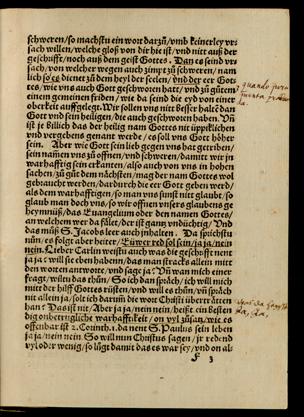 schweren/ so machstu ein wort darzů/ vmb keinerley vrs
sach willen/ welche gloß von dir hie ist/ vnd nit auß der
geschrifft/ noch auß dem geist Gottes. Dan es seind vrs
sach/ von welcher wegen auch zimpt zů schweren/ nam
lich so es dienet zů dem heyl der seelen/ vnd der eer Got
tes/ wie vns auch Gott geschworen hatt/ vnd zů gůtem
einem gemeinen friden/ wie da seind die eyd von einer
oberkeit auffgelegt. Wir sollen vns nitt besser halten dan
Gott vnd sein heiligen/ die auch geschworen haben. Vñ
ist je billich das der heilig nam Gottes nit üppiklichen
vnd vergebens genant werde/ es soll vns Gott höher
sein. Aber wie Gott sein lieb gegen vns hat getriben/
sein namen vns zů offnen/ vnd schweren/ damitt wir jn
warhafftig sein erkanten/ also auch von vns in hohen
sachen/ zů gůt dem nächsten/ mag der nam Gottes wol
gebraucht werden/ dardurch die eer Gott geben werd/
als dem warhafftigen/ so man vns sunst nitt glaubt/ so
glaub man doch vns/ so wir offnen vnsers glaubens ge
heymnüß/ das Euangelium oder den namen Gottes/
an welchem wer da fälet/ der ist gantz vndüchtig/ Vnd
das můß S. Jacobs leer auch jnhalten. Da sprichstu
nůn/ es folgt aber heiter/ Eüwer red sol sein/ ja ja/ nein
nein. Lieber Carlin weistu auch was die geschrifft nent
ja ja? will sie eben haben/ das man stracks allein mitt
den worten antworte/ vnd sage ja? Vñ wan mich einer
fragt/ wiltu das thůn? So ich dan spräch/ ich will mich
mit der hilff Gottes rüsten/ vnd will es thůn/ vñ spräch
nit allein ja/ solt ich darum die wort Christi überträtten
han? Das ist nit/ Aber ja ja/ nein nein/ heißt ein besten
dig onbetrugliche warhafftikeit/ on vyl züsatz/ wie es
offenbar ist 2. Corinth. 1. da nent S. Paulus sein leben
ja ja/ nein nein. So will nun Christus sagen/ jr reden
vyl oder wenig/ so lůgt damit das es war sey/ vnd on al
f 3